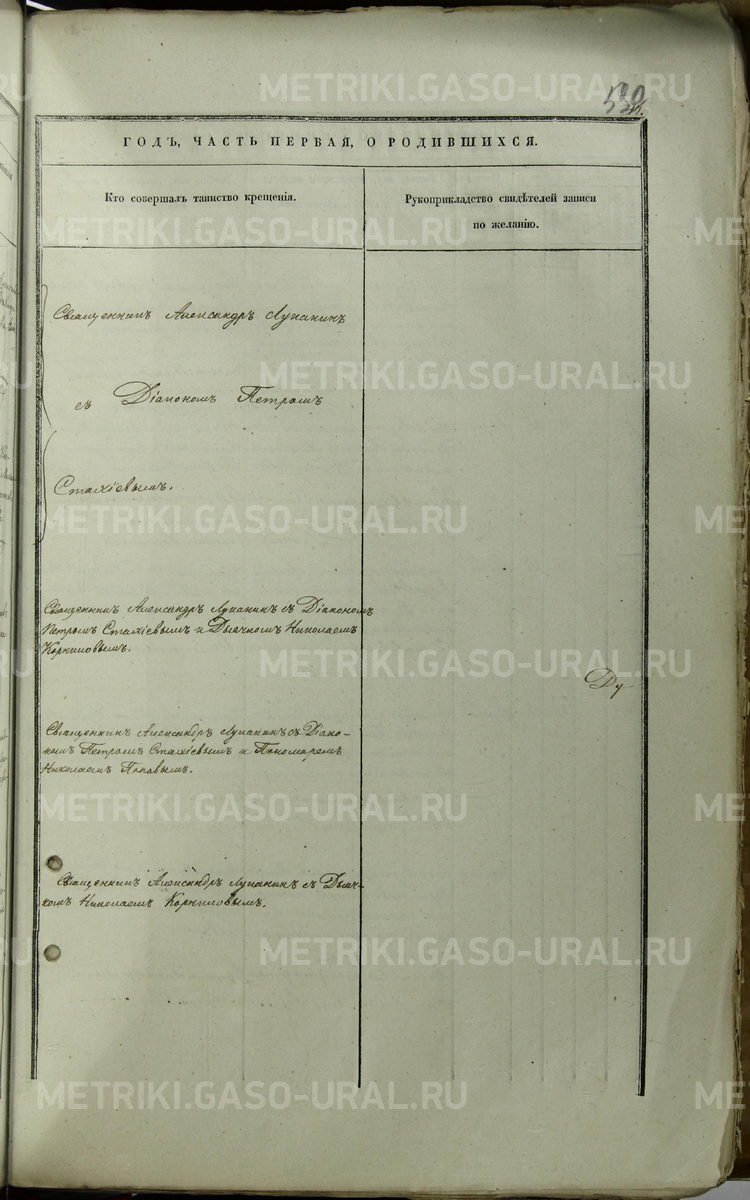 ГОДЪ, ЧАСТЬ ПЕРВАЯ, О РОДИВШИХСЯ.
Кто совершалъ таинство крещенія.
Рукоприкладство свидѣтелей записи
по желанію.
Священникъ Александръ Лупанинъ
съ Діакономъ Петромъ
Стахіевымъ.
Священникъ Александръ Лупанинъ съ Діакономъ
Петромъ Стахіевымъ и Дьячкомъ Николаемъ
Корниловымъ.
Священникъ Александръ Лупанинъ съ Діако-
номъ Петромъ Стахіевымъ и Пономаремъ
Николаемъ Поповымъ.
Священникъ Александръ Лупанинъ съ Дьяч-
комъ Николаемъ Корниловымъ.
METRIKI.GASO-URAL.RU
METRIKI.GASO-URAL.RU
METRIKI.GASO-URAL.RU
METRIKI.GASO-URAL.RU
METRIKI.GASO-URAL.RU
METRIKI.GASO-URAL.RU
METRIKI.GASO-URAL.RU
METRIKI.GASO-URAL.RU